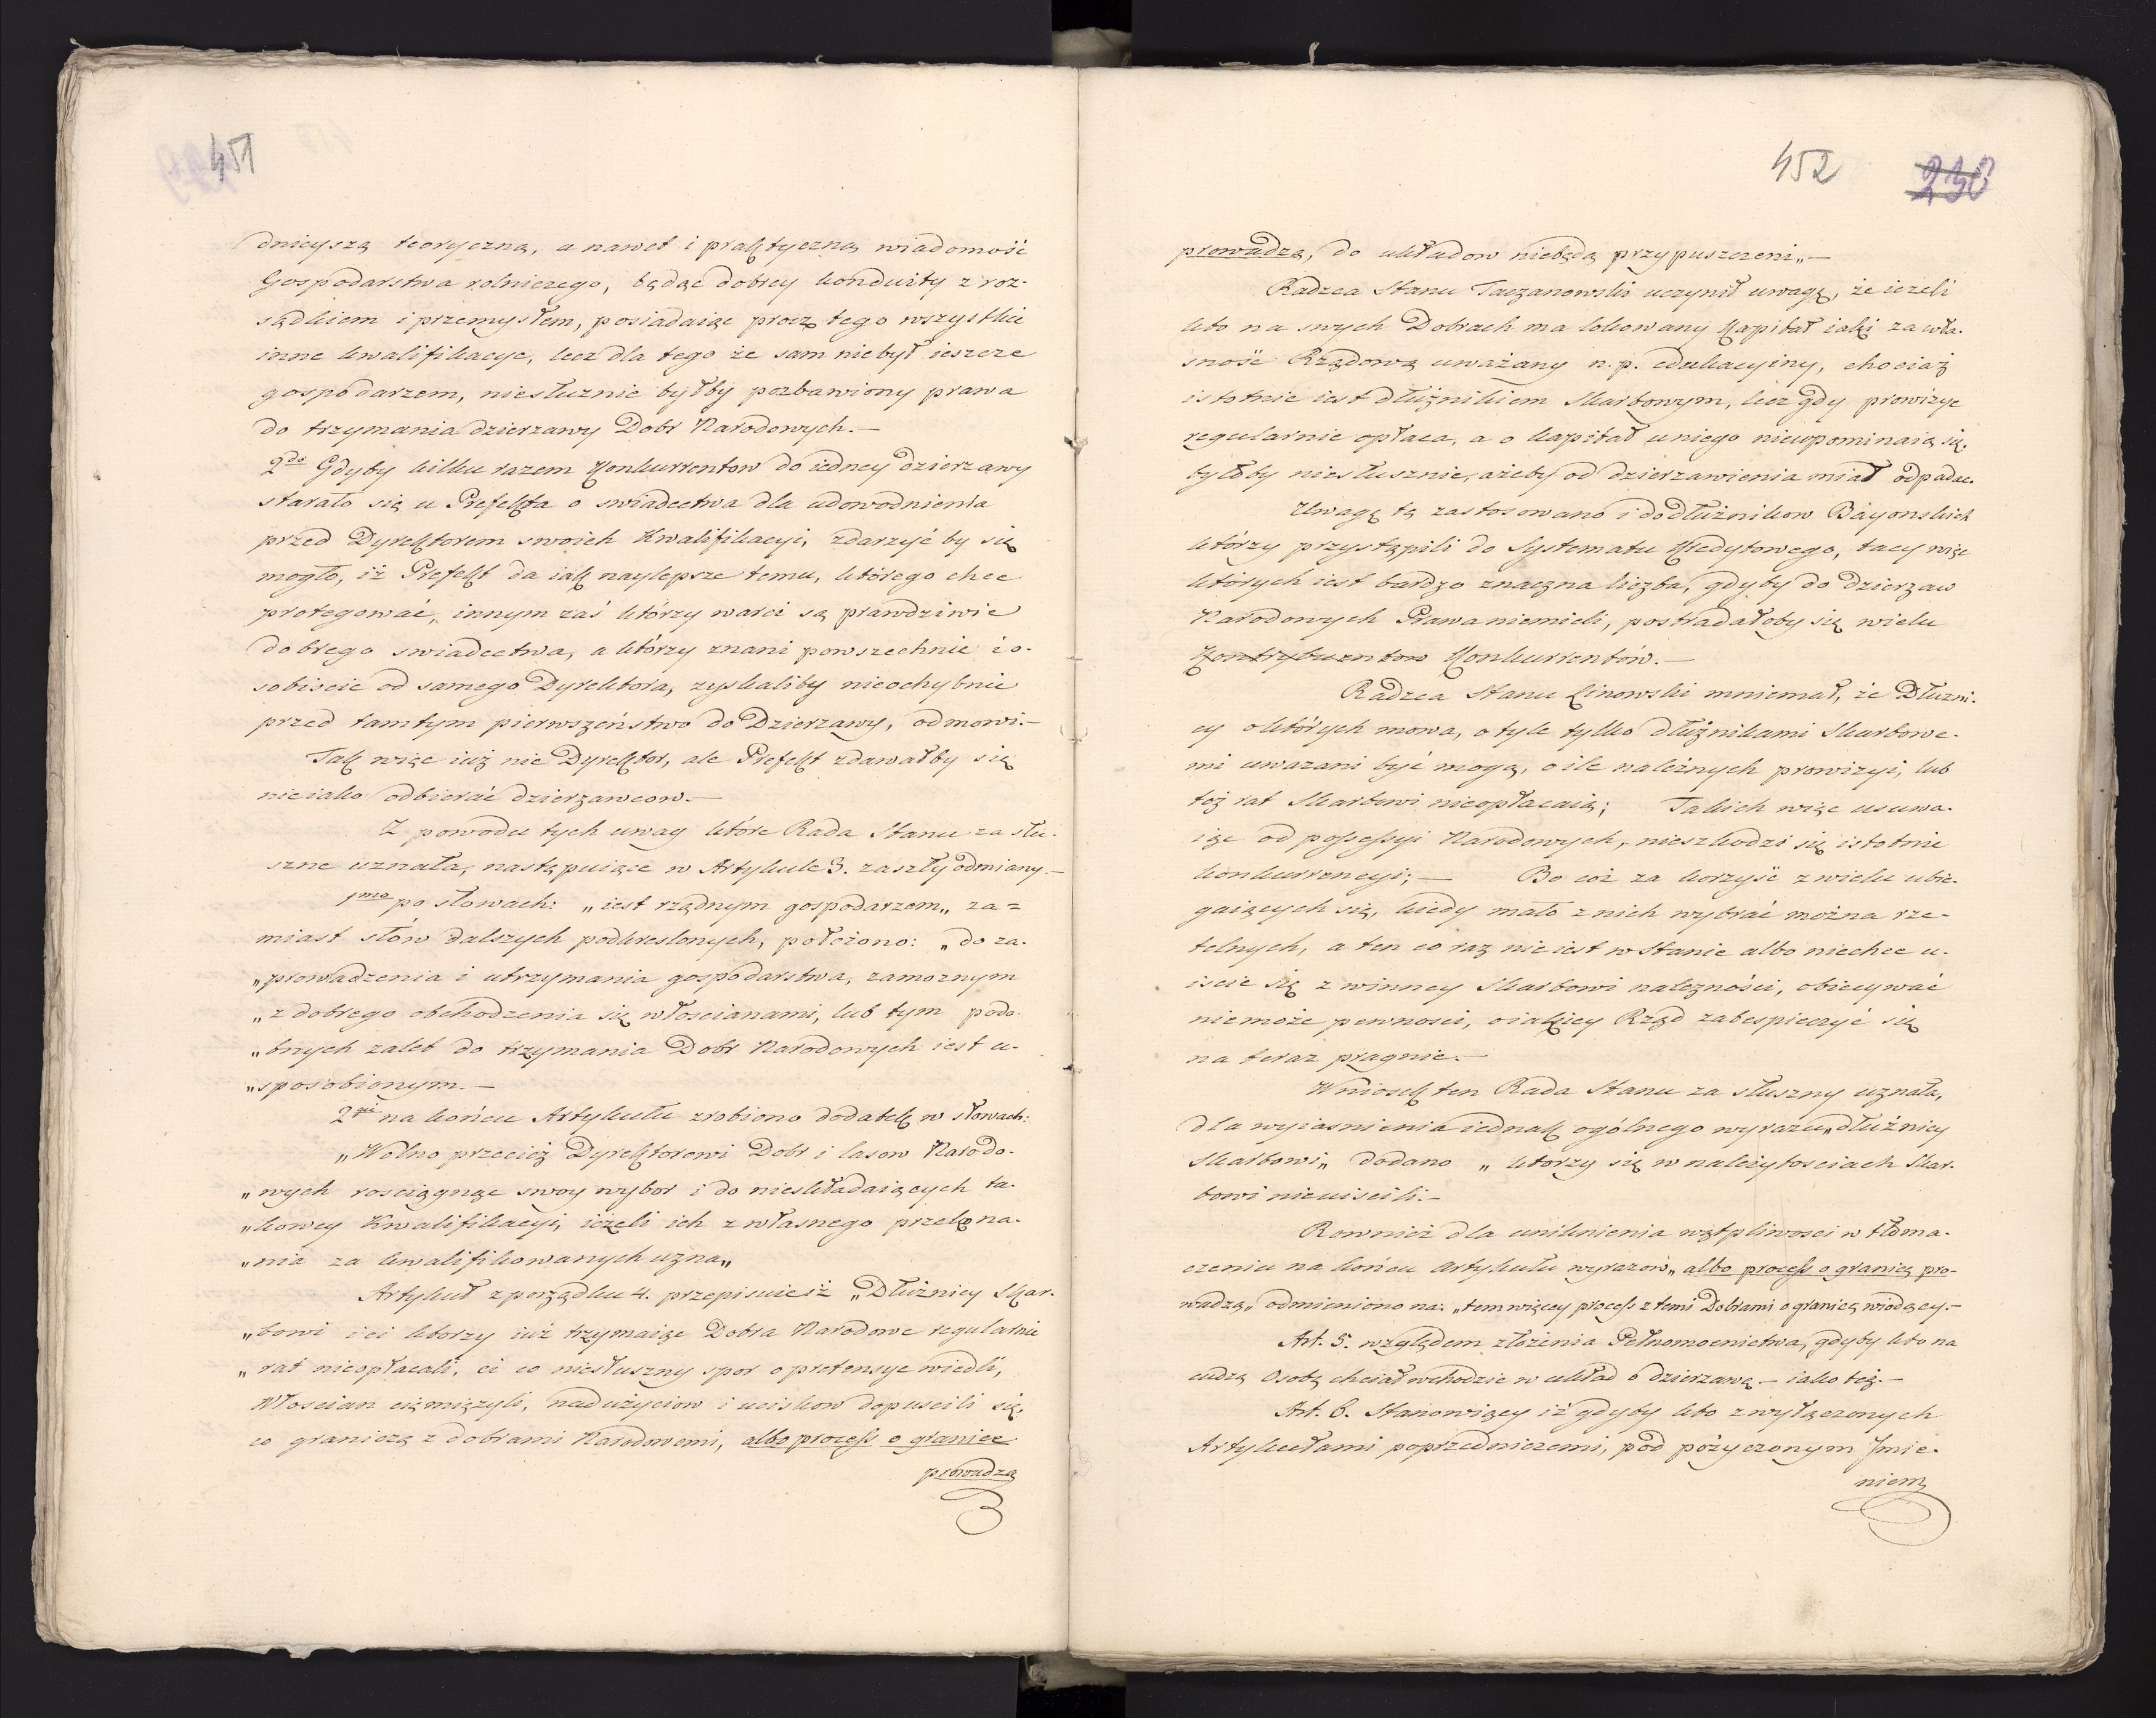 451
dnieyszą teoryczną, a nawet i praktyczną wiadomość
Gospodarstwa rolniczego, będąc dobrey konduity z roz-
sądkiem i przemysłem, posiadaiąc procz tego wszystkie
inne kwalifikacye, lecz dla tego że sam niebył ieszcze
gospodarzem, niesłusznie byłby pozbawiony prawa
do trzymania dzierzawy Dobr Narodowych.—
2do Gdyby kilku razem Konkurrentow do iedney dzierzawy
starało się u Prefekta o swiadectwa dla udowodnienia
przed Dyrektorem swoich Kwalifikacyi, zdarzyć by się
mogło, iż Prefekt da iak naylepsze temu, którego chce
protegować, innym zaś którzy warci są prawdziwie
dobrego swiadectwa, a którzy znani powszechnie i o-
sobiscie od samego Dyrektora, zyskaliby nieochybnie
przed tamtym pierwszeństwo do Dzierzawy, odmowi.—
Tak więc iuż nie Dyrektor, ale Prefekt zdawałby się
nieiako odbierać dzierzawcow.—
Z powodu tych uwag które Rada Stanu za słu-
szne uznała, nastepuiące w Artykule 3. zaszły odmiany.—
1mo po słowach: „iest rządnym gospodarzem„ za=
miast słów dalszych podkreslonych, położono: „do za-
„prowadzenia i utrzymania gospodarstwa, zamoznym
„z dobrego obchodzenia się włoscianami, lub tym podo-
„bnych zalet do trzymania Dobr Narodowych iest u-
„sposobionym.—
2gie na końcu Artykułu zrobiono dodatek w słowach:
„Wolno przecież Dyrektorowi Dobr i lasow Narodo-
„wych rosciągnąc swoy wybor i do nieskładaiących ta-
„kowey Kwalifikacyi, ieżeli ich z własnego przekona-
„nia za kwalifikowanych uzna„
Artykuł z porządku 4. przepisuie iż „Dłużnicy Skar-
„bowi i ci ktorzy iuż trzymaiąc Dobra Narodowe regularnie
„rat nieopłacali, ci co niesłuszny spor o pretensye wiedli,
Włoscian ciemiężyli, nadużyciow i uciskow dopuscili się,
co graniczą z dobrami Narodowemi, albo process o granice
prowadzą
452
230
prowadzą, do układow niebędą przypuszczeni„—
Radzca Stanu Taczanowski uczynił uwagę, że iezeli
kto na swych Dobrach ma lokowany Kapitał iaki za wła-
sność Rządową uważany n.p. edukacyiny, chociaż
istotnie iest dłużnikiem Skarbowym, lecz gdy prowizye
regularnie opłaca, a o kapitał u niego nieupominaią się,
byłoby niesłusznie, ażeby od dzierzawienia miał odpadac.
Uwagę tę zastosowano i do dłużnikow Bayonskich
którzy przystąpili do Systematu Kredytowego, tacy więc
których iest bardzo znaczna liczba, gdyby do Dzierzaw
Narodowych Prawa niemieli, postradałoby się wielu
Kontrybuentow Konkurrentów.—
Radzca Stanu Linowski mniemał, że Dłużni-
cy o których mowa, o tyle tylko dłużnikami Skarbowe-
mi uwazani być mogą, o ile należnych prowizyi, lub
też rat Skarbowi nieopłacaią; Takich więc usuwa-
iąc od possessyi Narodowych, nieszkodzi się istotnie
konkurrencyi;— Bo coż za korzyść z wielu ubie-
gaiących się, kiedy mało z nich wybrać można rze-
telnych, a ten co raz nie iest w Stanie albo niechce u-
iscic się z winney Skarbowi nalezności, obiecywać
niemoże pewnosci, o iakiey Rząd zabespieczyć się
na teraz pragnie.—
Wniosek ten Rada Stanu za słuszny uznała,
dla wyiasnienia iednak ogólnego wyrazu „dłużnicy
Skarbowi„ dodano „ktorzy się w należytosciach Skar-
bowi nieuiscili.—
Rownież dla uniknienia wątpliwosci w tłoma-
czeniu na końcu Artykułu wyrazow „albo process o granicę pro-
wadzą„ odmieniono na: „tem więcey process z temi Dobrami o granicę wiodący.—
Art. 5. względem złożenia Pełnomocnictwa, gdyby kto na
cudzą Osobę chciał wchodzic w układ o dzierzawę— iako też.—
Art. 6. Stanowiący iż gdyby kto z wyłączonych
Artykułami poprzedniczemi, pod pożyczonym Imie-
niem